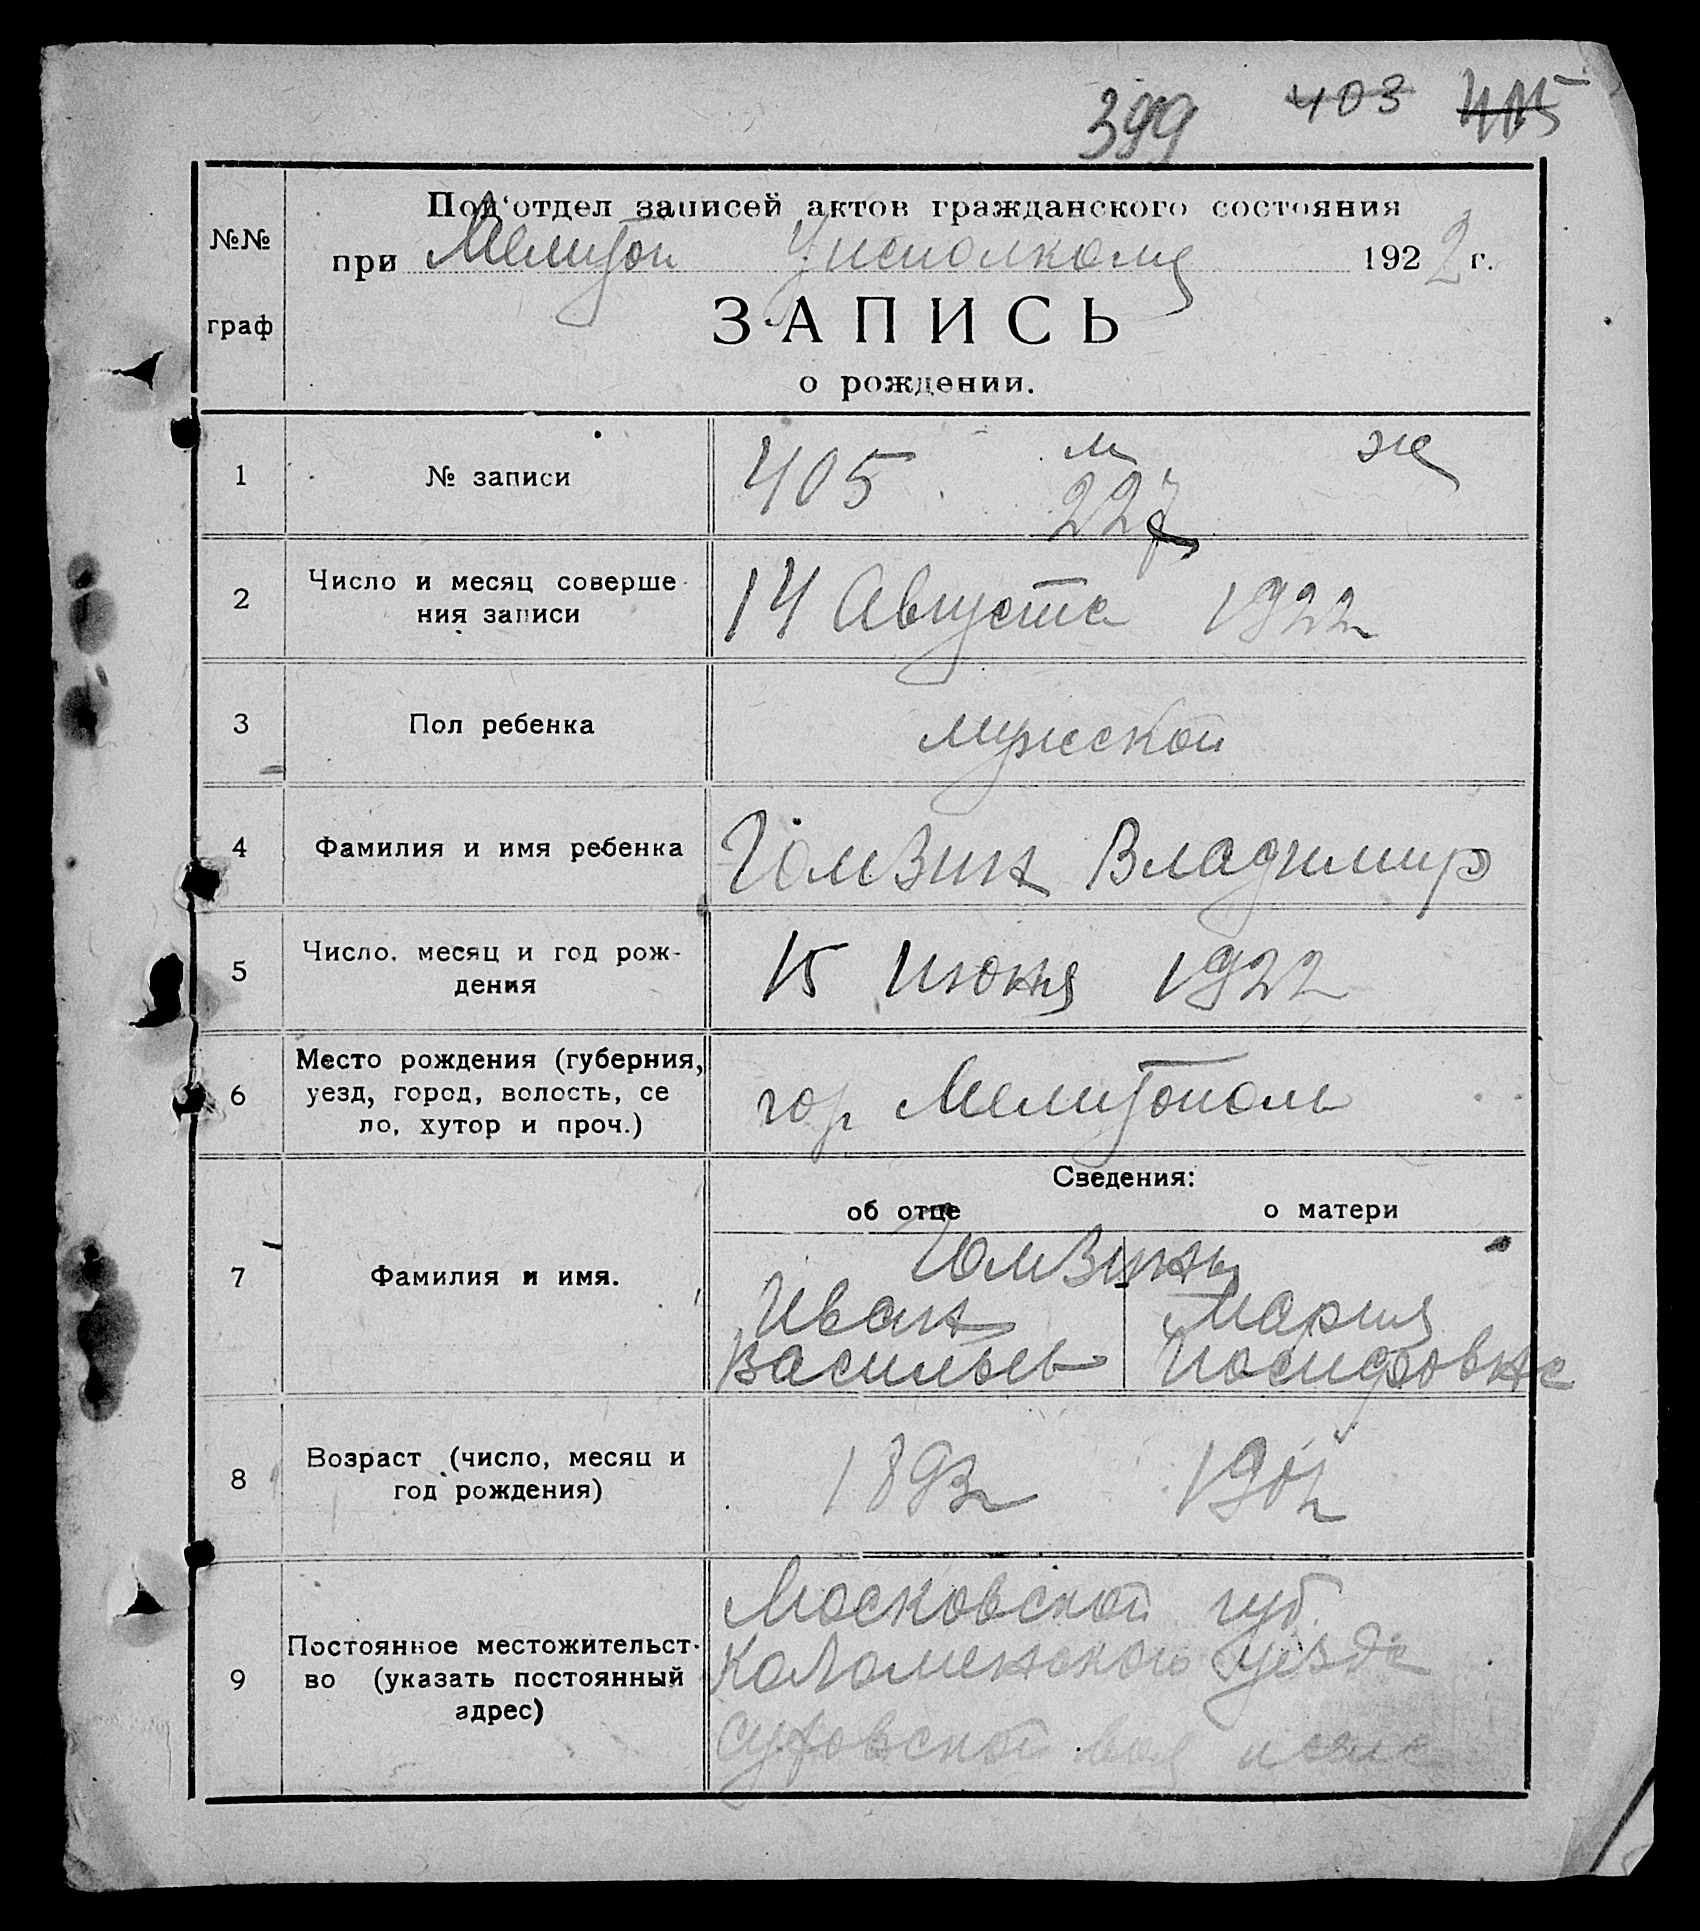 399 403 415
№№ граф
Под'отдел записей актов гражданского состояния
при Мелитоп Уисполкоме 1922 г.
ЗАПИСЬ
о рождении.
1 № записи 405 м 227 ж
2 Число и месяц соверше
ния записи 14 Августа 1922
3 Пол ребенка мужской
4 Фамилия и имя ребенка Гомзин Владимир
5 Число, месяц и год рож-
дения 15 Июня 1922
6 Место рождения (губерния,
уезд, город, волость, се
ло, хутор и проч.) гор Мелитополь
Сведения:
об отце о матери
7 Фамилия и имя. Гомзины
Иван Мария
Васильев Иосифовна
8 Возраст (число, месяц и
год рождения) 1893
9 Постоянное местожительст-
во (указать постоянный
адрес) Московской губ.
Коломенского уезда
вол